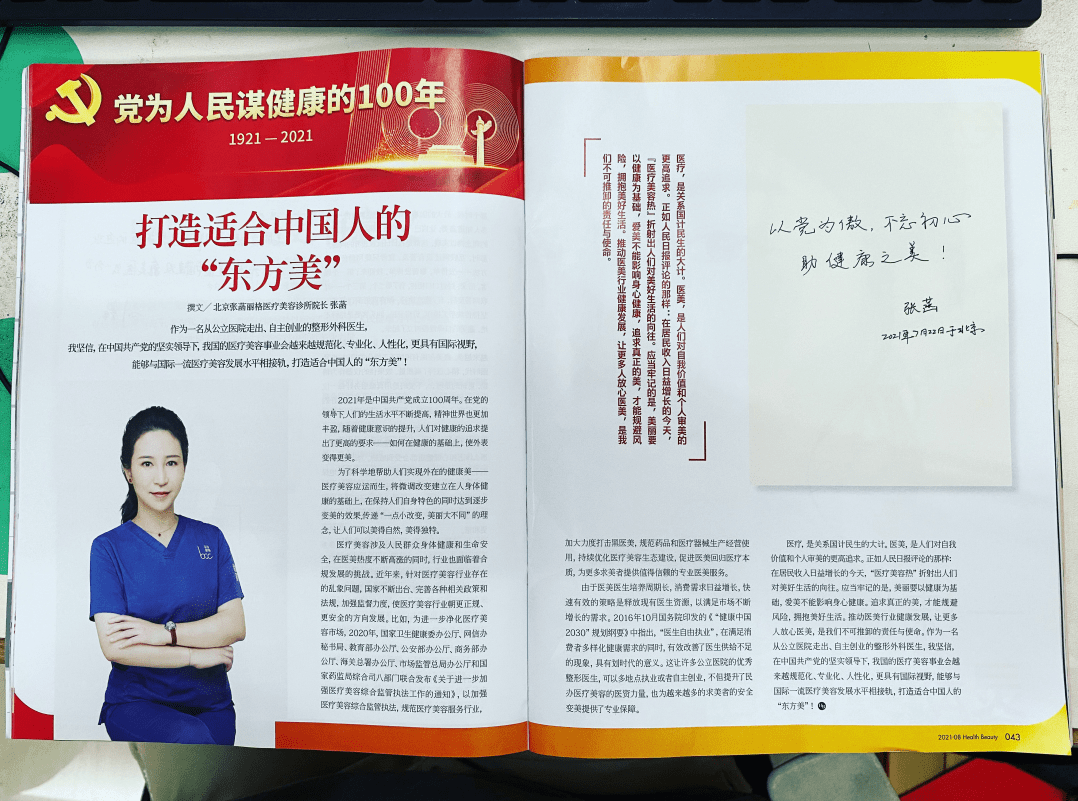 党为人民谋健康的100年
1921—2021
打造适合中国人的
“东方美”
撰文／北京张菡丽格医疗美容诊所院长 张菡
作为一名从公立医院走出、自主创业的整形外科医生，
我坚信，在中国共产党的坚实领导下，我国的医疗美容事业会越来越规范化、专业化、人性化，更具有国际视野，
能够与国际一流医疗美容发展水平相接轨，打造适合中国人的“东方美”！
2021年是中国共产党成立100周年。在党的
领导下人们的生活水平不断提高，精神世界也更加
丰盈，随着健康意识的提升，人们对健康的追求提
出了更高的要求——如何在健康的基础上，使外表
变得更美。
为了科学地帮助人们实现外在的健康美——
医疗美容应运而生，将微调改变建立在人身体健
康的基础上，在保持人们自身特色的同时达到逐步
变美的效果，传递“一点小改变，美丽大不同”的理
念，让人们可以美得自然，美得独特。
医疗美容涉及人民群众身体健康和生命安
全，在医美热度不断高涨的同时，行业也面临着合
规发展的挑战。近年来，针对医疗美容行业存在
的乱象问题，国家不断出台、完善各种相关政策和
法规，加强监督力度，使医疗美容行业朝更正规、
更安全的方向发展。比如，为进一步净化医疗美
容市场，2020年，国家卫生健康委办公厅、网信办
秘书局、教育部办公厅、公安部办公厅、商务部办
公厅、海关总署办公厅、市场监管总局办公厅和国
家药监局综合司八部门联合发布《关于进一步加
强医疗美容综合监管执法工作的通知》，以加强
医疗美容综合监管执法，规范医疗美容服务行业，
医疗，是关系国计民生的大计。医美，是人们对自我价值和个人审美的
更高追求。正如人民日报评论的那样：在居民收入日益增长的今天，
『医疗美容热』折射出人们对美好生活的向往。应当牢记的是，美丽要
以健康为基础，爱美不能影响身心健康，追求真正的美，才能规避风
险，拥抱美好生活。推动医美行业健康发展，让更多人放心医美，是我
们不可推卸的责任与使命。
以党为傲，不忘初心
助健康之美！
张菡
2021年7月22日于北京
加大力度打击黑医美，规范药品和医疗器械生产经营使
用，持续优化医疗美容生态建设，促进医美回归医疗本
质，为更多求美者提供值得信赖的专业医美服务。
由于医美医生培养周期长，消费需求日益增长，快
速有效的策略是释放现有医生资源，以满足市场不断
增长的需求。2016年10月国务院印发的《“健康中国
2030”规划纲要》中指出，“医生自由执业”，在满足消
费者多样化健康需求的同时，有效改善了医生供给不足
的现象，具有划时代的意义。这让许多公立医院的优秀
整形医生，可以多地点执业或者自主创业，不但提升了民
办医疗美容的医资力量，也为越来越多的求美者的安全
变美提供了专业保障。
医疗，是关系国计民生的大计。医美，是人们对自我
价值和个人审美的更高追求。正如人民日报评论的那样：
在居民收入日益增长的今天，“医疗美容热”折射出人们
对美好生活的向往。应当牢记的是，美丽要以健康为基
础，爱美不能影响身心健康。追求真正的美，才能规避
风险，拥抱美好生活。推动医美行业健康发展，让更多
人放心医美，是我们不可推卸的责任与使命。作为一名
从公立医院走出、自主创业的整形外科医生，我坚信，
在中国共产党的坚实领导下，我国的医疗美容事业会越
来越规范化、专业化、人性化，更具有国际视野，能够与
国际一流医疗美容发展水平相接轨，打造适合中国人的
“东方美”！
2021·08 Health Beauty 043